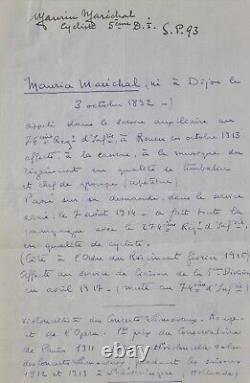 Maurice Maréchal
Cycliste 5ème D.I. S.P. 93
Maurice Maréchal (né à Dijon le
3 octobre 1892 —)
appelé dans le service auxiliaire au
74ème Rég^t d'Inf^rie, à Rouen en octobre 1913
affecté, à la caserne, à la musique du
régiment en qualité de timbalier
et chef de groupe
Parti sur sa demande, dans le service
armé, le 7 août 1914 — a fait toute la
campagne avec le 274ème Rég^t d'Inf^rie
en qualité de cycliste.
(Cité à l'Ordre du Régiment février 1915)
Affecté au service de liaison de la 5ème Division
en avril 1917 — (muté au 74ème d'Inf^rie)
violoncelliste des Concerts Lamoureux.
et de l'Opéra. 1er prix du Conservatoire
de Paris 1911
pendant les saisons
1912 et 1913 à (Hollande)